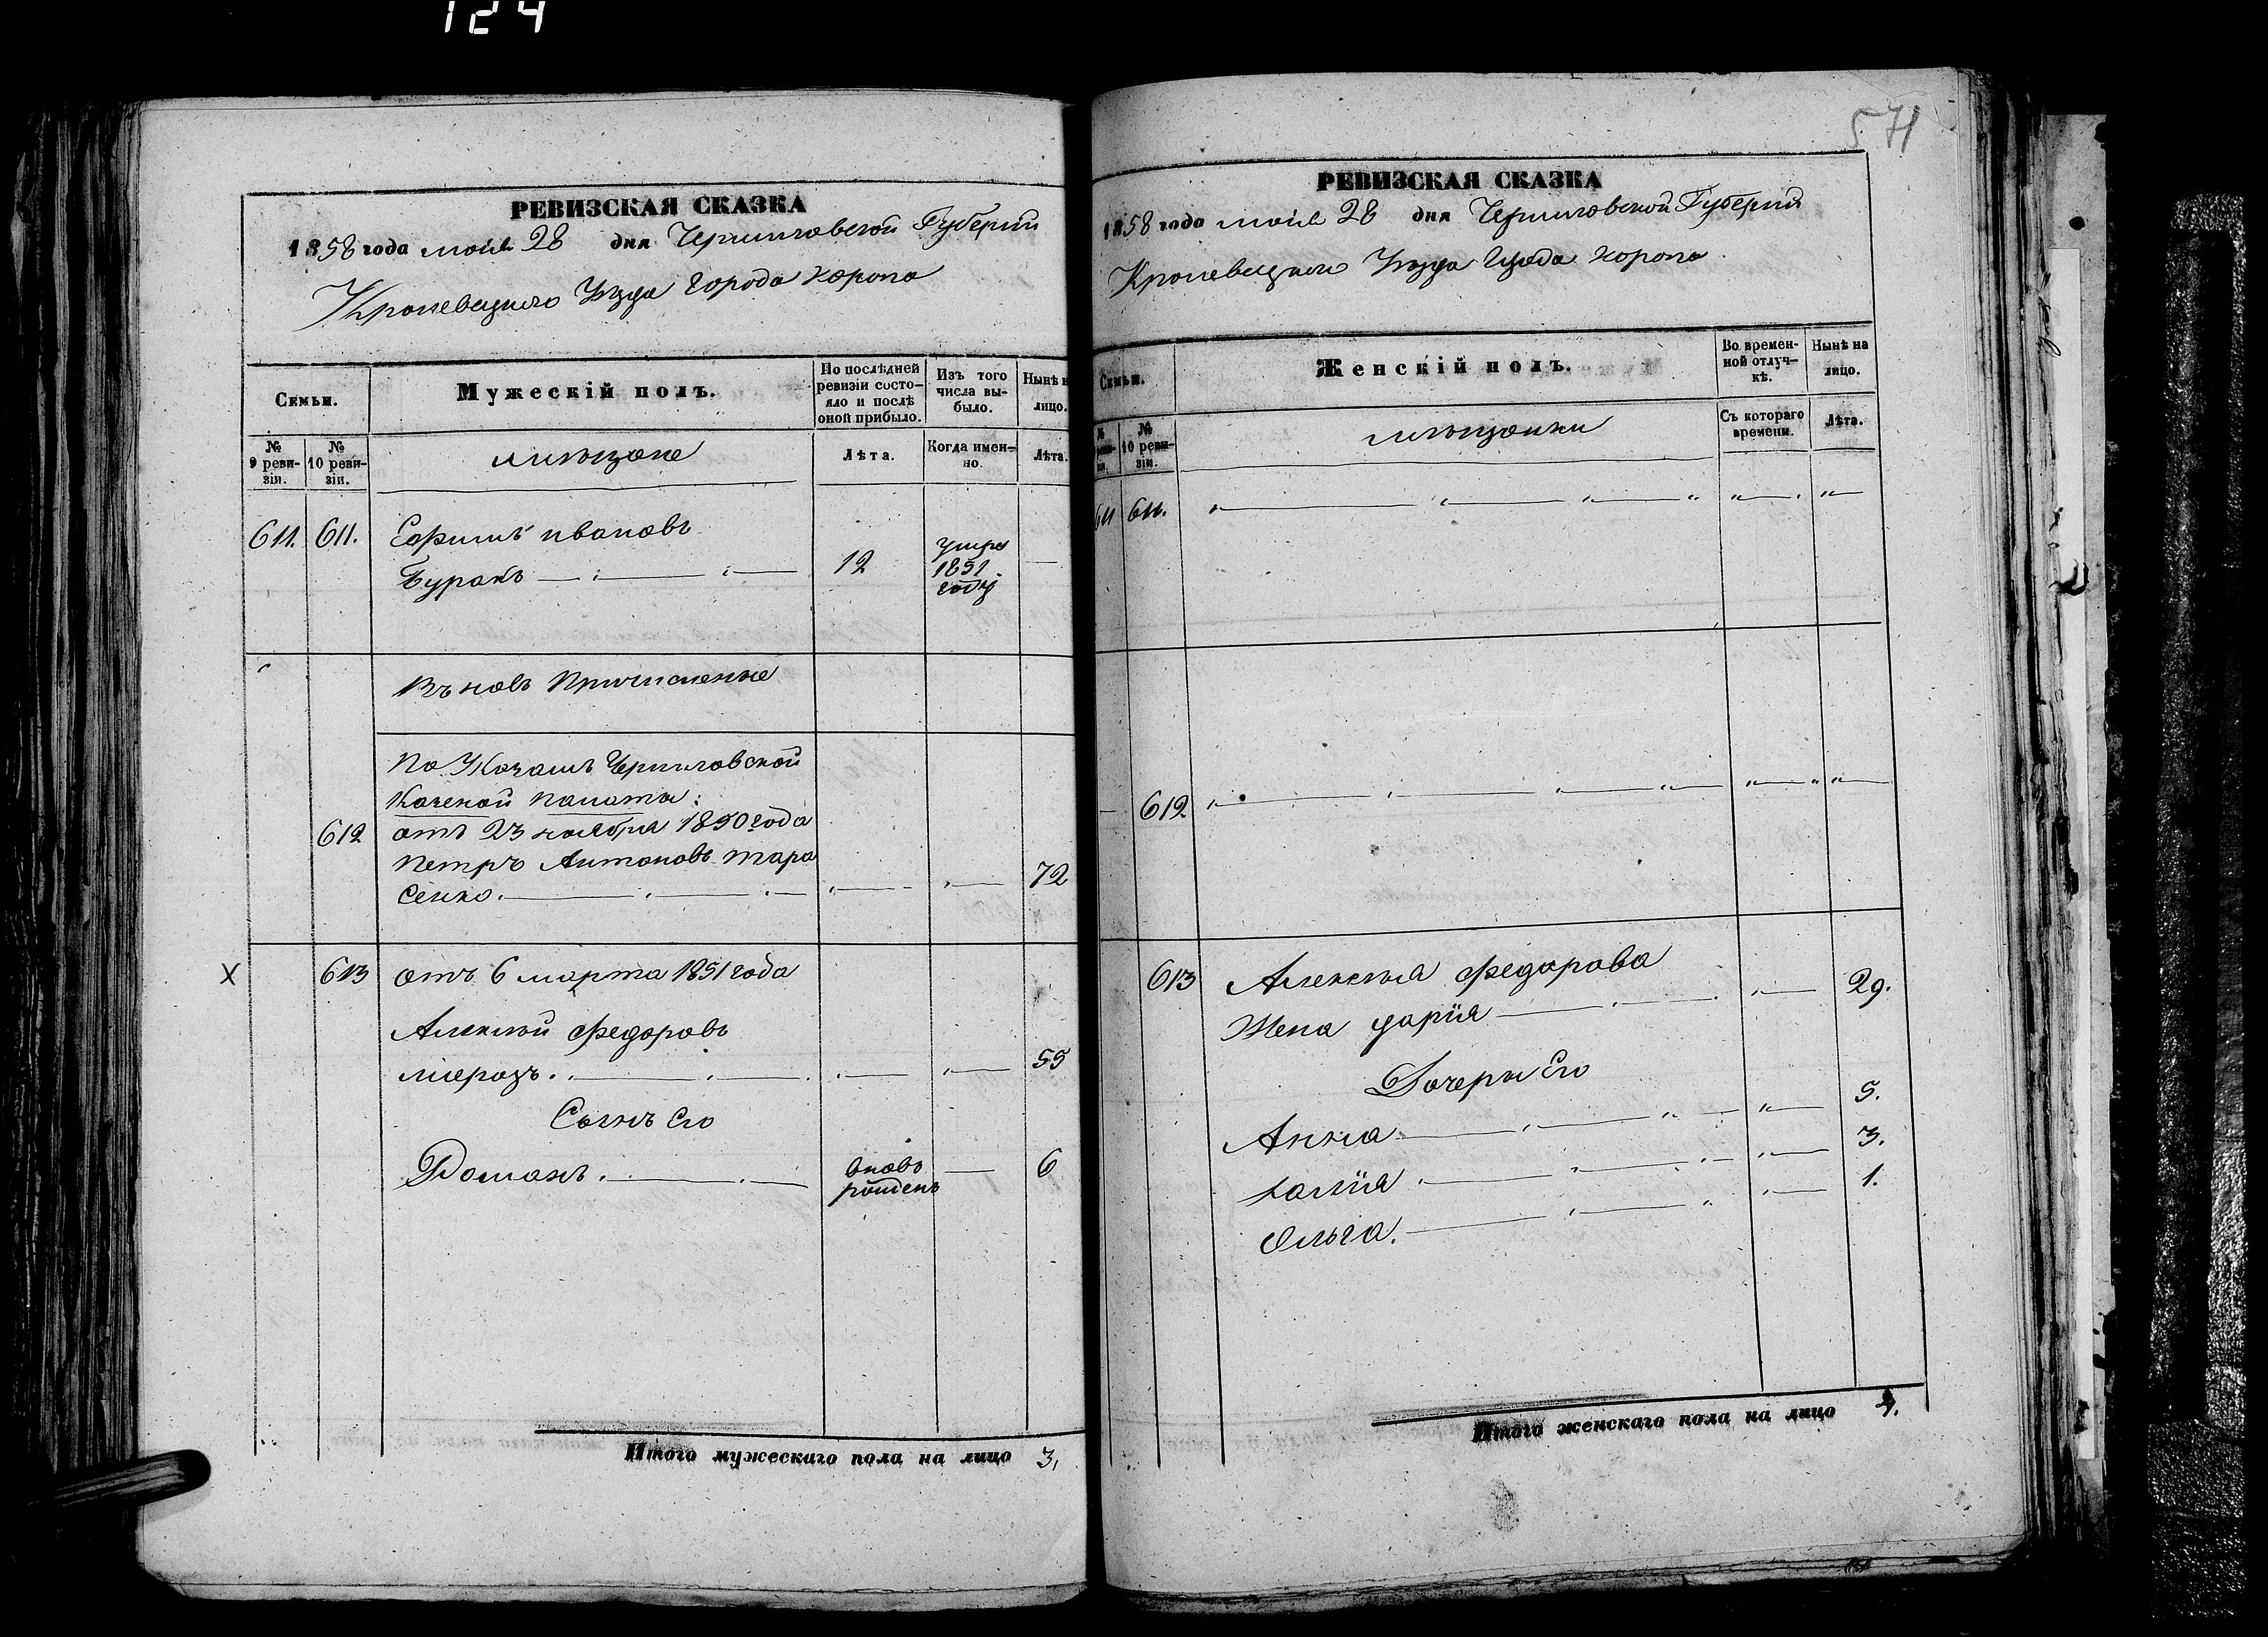 124
571
РЕВИЗСКАЯ СКАЗКА
1858 года маія 28 дня Черниговской Губерніи
Кролевецкаго Уѣзда города Коропа
Семьи.
Мужескій полъ.
По послѣдней ревизіи состояло и послѣ оной прибыло.
Изъ того числа выбыло.
Нынѣ н
лицо.
№ 9 ревизіи.
№ 10 ревизіи.
мѣщане
Лѣта.
Когда именно.
Лѣта.
611. 611. Ефимъ Ивановъ
Буракъ 12 умре 1851 году
Въ новь Причисленные
По Указамъ Черниговской
Казеной Палаты:
612 отъ 23 ноября 1850 года
Петръ Антоновъ Тара
сенко. 72
X 613 отъ 6 марта 1851 года
Алексѣй Федоровъ
55
Сынъ Его
Романъ. вновь рожденъ 6
Итого мужескаго пола на лицо 3.
РЕВИЗСКАЯ СКАЗКА
1858 года маія 28 дня Черниговской Губерніи
Кролевецкаго Уѣзда Города Коропа
Семьи.
Женскій полъ.
Во временной отлучкѣ.
Нынѣ на лицо.
10 ревизіи.
мѣщанки
Съ котораго времени.
Лѣта.
611 611.
612
613 Алексѣя Федорова
Жена Дарія 29.
Дочери Его
Анна 5.
3.
Ольга. 1.
Итого женскаго пола на лицо 4.